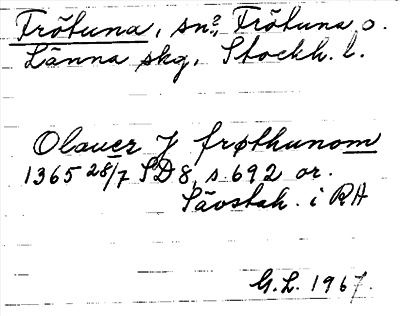 Frötuna, sn?, Frötuna o.
Länna skg, Stockh. l.
Olauer J frøthunom
1365 28/7 SD 8, s. 692 or.
Sävstah. i RA
G.L. 1967.